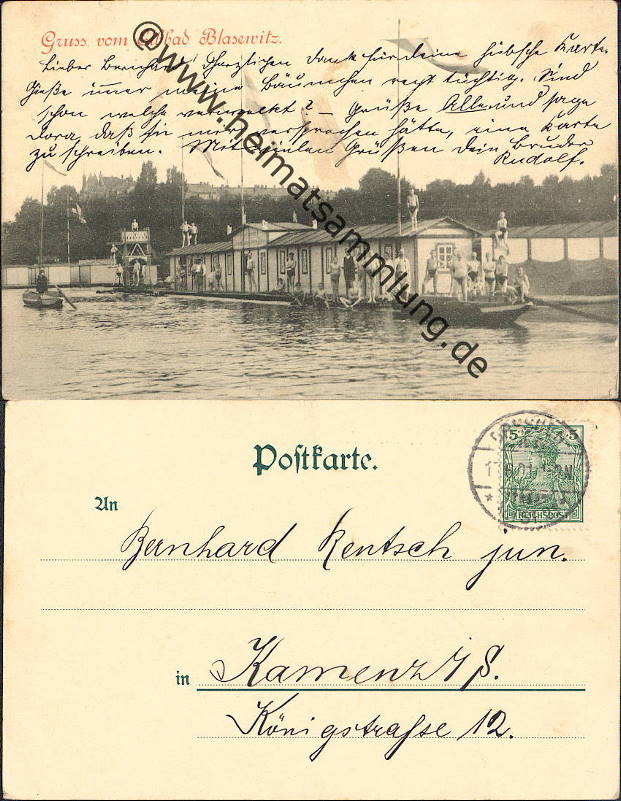 Gruss vom Elbbad Blasewitz.
Lieber Bernhard! Herzlichen Dank für deine hübsche Karte.
Gieße immer meine Bäumchen recht tüchtig. Sind
schon welche verwelkt? – Grüße Alle und sage
Dora, daß sie mir versprochen hätte, eine Karte
zu schreiben. Mit vielen Grüßen dein Bruder
Rudolf.
@www.heimatsammlung.de
Postkarte.
An
Bernhard Rentsch jun.
in Kamenz i/S.
Königstraße 12.
5 5
REICHSPOST